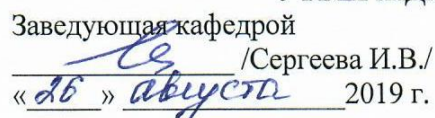 Заведующая кафедрой
/Сергеева И.В./
«26» августа 2019 г.